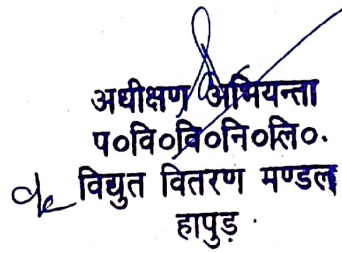 अधीक्षण अभियन्ता
प०वि०वि०नि०लि०.
विद्युत वितरण मण्डल
हापुड़